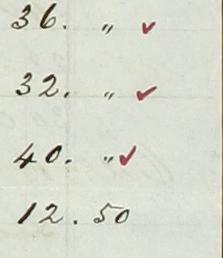 36. " ✓
32. " ✓
40. " ✓
12. 50